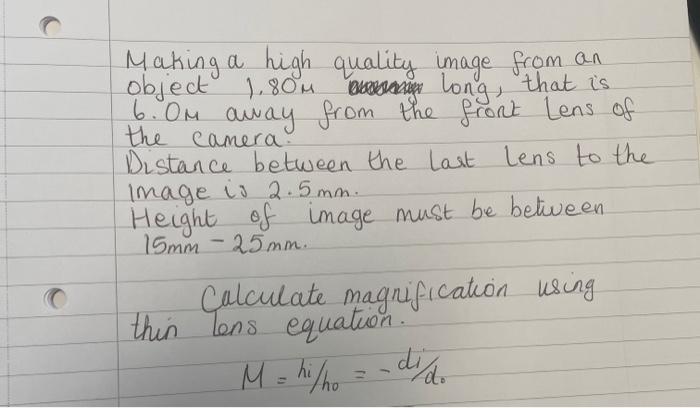 Making a high quality image from an
object 1.80M long, that is
6.0M away from the front lens of
the camera.
Distance between the last lens to the
image is 2.5mm.
Height of image must be between
15mm - 25mm.
Calculate magnification using
thin lens equation.
M = hi/ho = - di/do